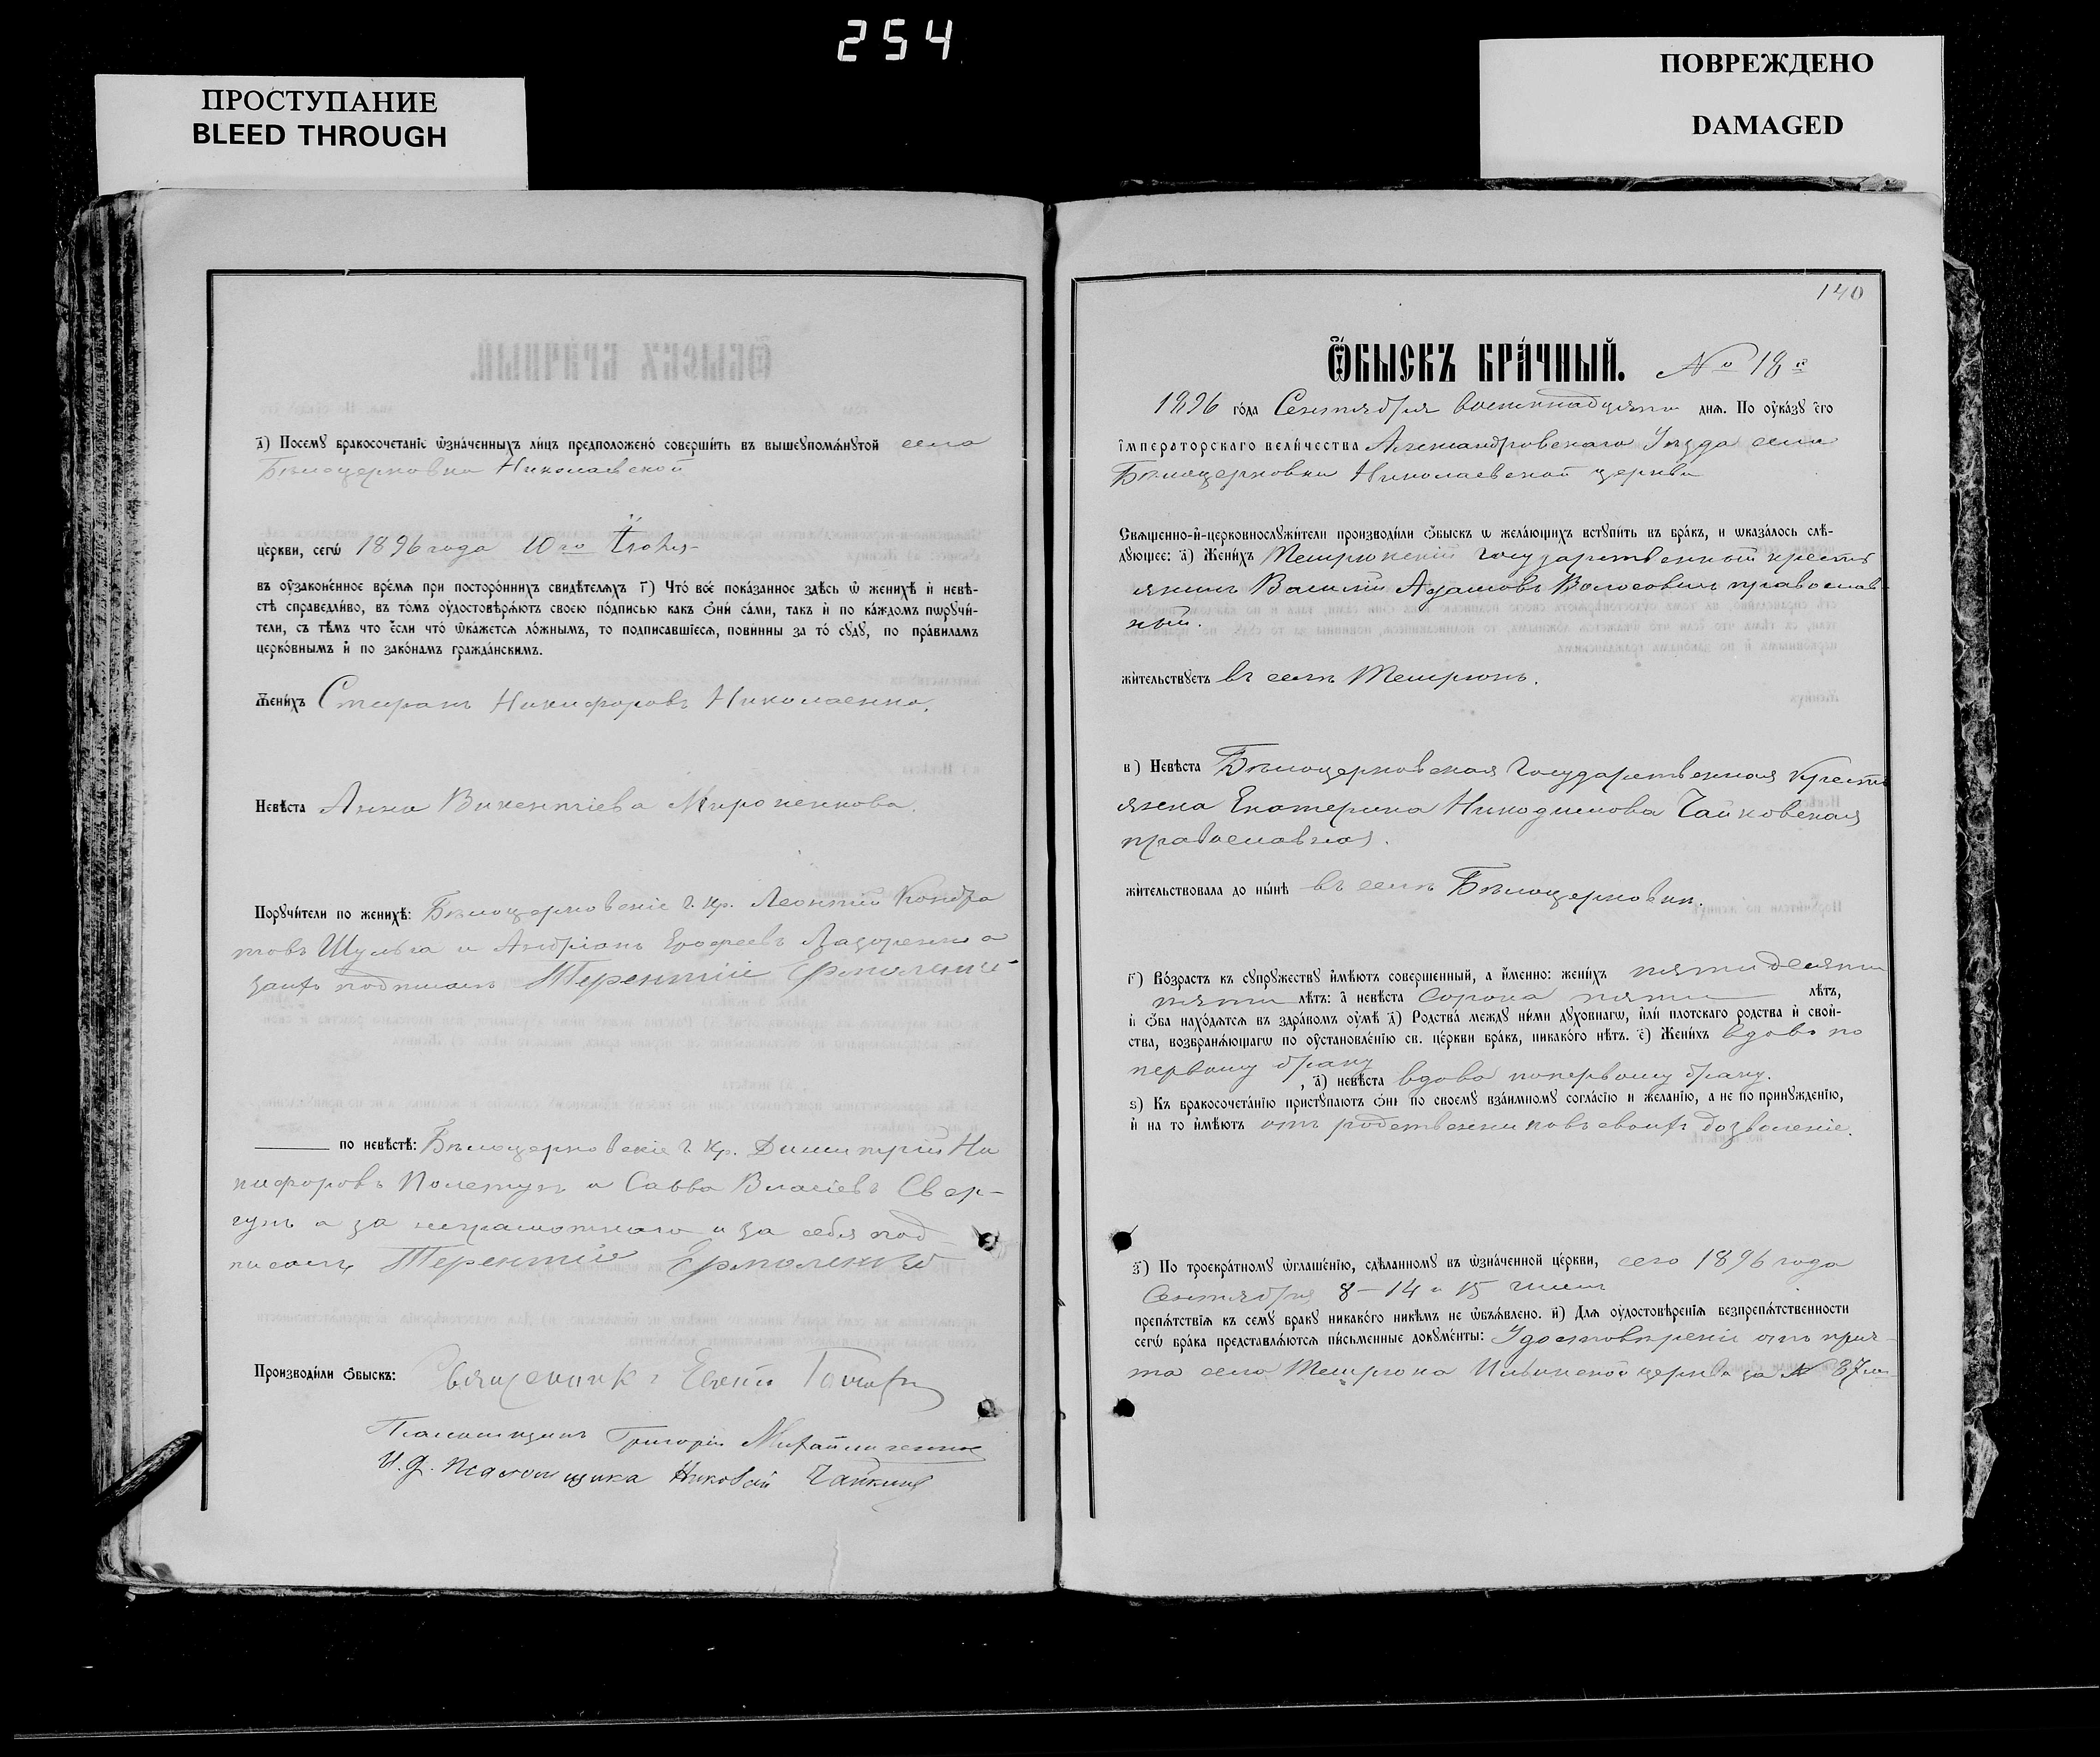 254
ПРОСТУПАНИЕ
BLEED THROUGH
ПОВРЕЖДЕНО
DAMAGED
а҃) Посему бракосочетаніе ѡзначенныхъ лицъ предположено совершить въ вышеупомянутой села
Бѣлоцерковки Николаевской
церкви, сегѡ 1896 года 10го Іюля
въ оузаконенное время при постороннихъ свидѣтеляхъ г҃) Что все показанное здѣсь ѡ женихѣ и невѣ-
стѣ справедливо, въ томъ оудостовѣряютъ своею подписью какъ ѻни сами, такъ и по каждомъ поручи-
тели, съ тѣмъ что если что ѡкажется ложнымъ, то подписавшіеся, повинны за то суду, по правиламъ
церковнымъ и по законамъ гражданскимъ.
Женихъ Стефанъ Никифоровъ Николаенко.
Невѣста Анна Викентіева Мироненкова.
Поручители по женихѣ: Бѣлоцерковскіе г. кр. Леонтій Кондра
товъ Шульга и Андріанъ Ерофеевъ Лазоренко а
за нихъ подписалъ Терентіе Ермоленко
по невѣстѣ: Бѣлоцерковскіе г. кр. Димитрій Ни
кифоровъ Полетуха и Савва Власіевъ Свер-
гунъ а за неграмотнаго и за себя под-
писалъ Терентіе Ермоленко
Производили ѻбыскъ: Священникъ
Псаломщикъ Григорій Михайличенко
И. д. псаломщика Николай
140
Ѻбыскъ брачный. № 18й
1896 года Сентября восемнадцати дня. По оуказу Его
Императорскаго величества Александровскаго Уѣзда села
Бѣлоцерковки Николаевской церкви
Священно-и-церковнослужители производили ѻбыскъ ѡ желающихъ вступить въ бракъ, и ѡказалось слѣ-
дующее: а҃) Женихъ Темрюкскій государственный кресть
янинъ Василій Адамовъ Волосовикъ православ-
ный.
жительствуетъ въ селѣ Темрюкъ.
в҃) Невѣста Бѣлоцерковская государственная Кресть
янка Екатерина Никодимова Чайковская
православная.
жительствовала до нынѣ въ селѣ Бѣлоцерковки.
г҃) Возрастъ къ супружеству имѣютъ совершенный, а именно: женихъ пятидесяти
пяти лѣтъ: а невѣста сорока пяти лѣтъ,
и ѻба находятся въ здравомъ оумѣ д҃) Родства между ними духовнагѡ, или плотскаго родства и свой-
ства, возбраняющагѡ по оустановленію св. церкви бракъ, никакого нѣтъ. е҃) Женихъ вдовъ по
первому браку
, а҃) невѣста вдова по первому браку.
ѕ҃) Къ бракосочетанію приступаютъ ѻни по своему взаимному согласію и желанію, а не по принужденію,
и на то имѣютъ отъ родственниковъ своихъ дозволеніе.
з҃) По троекратному ѡглашенію, сдѣланному въ ѡзначенной церкви, сего 1896 года
Сентября 8 – 14 и 15 чиселъ
препятствія къ сему браку никакого никѣмъ не ѡбъявлено. и҃) Для оудостовѣренія безпрепятственности
сегѡ брака представляются письменные документы: Удостовѣреніе отъ прич-
та села Темрюка Ильинской церкви за № 37м